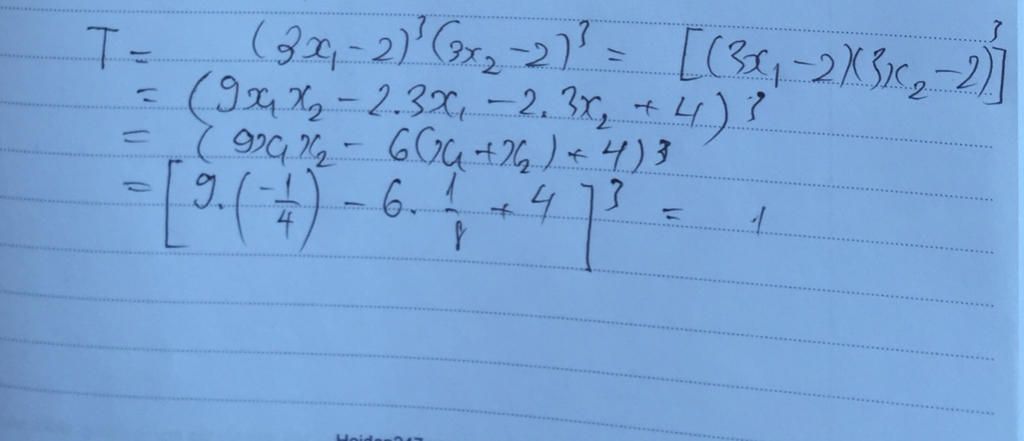 T = (3x₁ - 2)³(3x₂ - 2)³ = [(3x₁ - 2)(3x₂ - 2)]³
= (9x₁x₂ - 2.3x₁ - 2.3x₂ + 4)³
= (9x₁x₂ - 6(x₁ + x₂) + 4)³
= [9.(-1/4) - 6.1/8 + 4]³ = 1